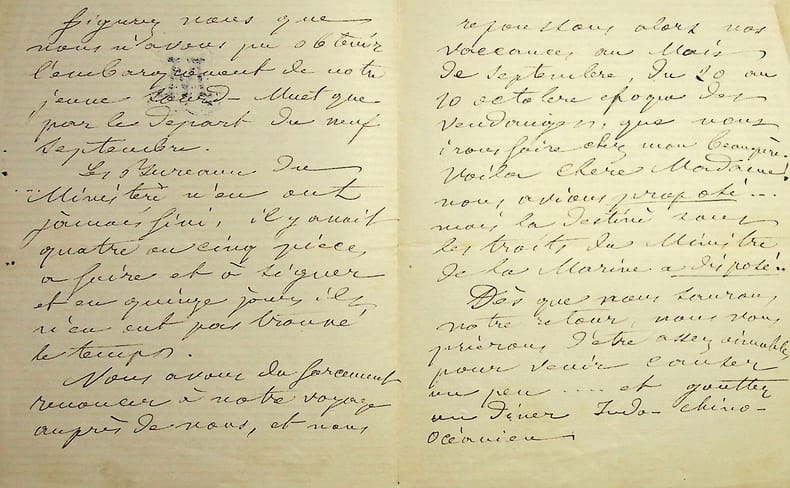 figurez vous que
nous n'avons pu obtenir
l'embarquement de notre
jeune sourd-Muet que
par le départ du neuf
septembre.
Les Bureaux du
Ministère n'en ont
jamais fini, il y avait
quatre ou cinq pièces
a faire et à signer
et en quinze jours ils
n'en ont pas trouvé
le temps.
Nous avons du forcement
renoncer à notre voyage
auprès de vous, et nous
repoussons alors nos
vaccances au Mois
de septembre, du 20 au
10 octobre epoque des
vendanges, que nous
irons faire chez mon beaupère.
Voila chère Madame
nous avions proposé...
mais la destiné sous
les traits du Ministre
de la Marine a disposé..
Dès que nous saurons
notre retour, nous vous
prierons d'être assez aimables
pour venir causer
un peu .... et goutter
un diner Indo-chino-
océanien